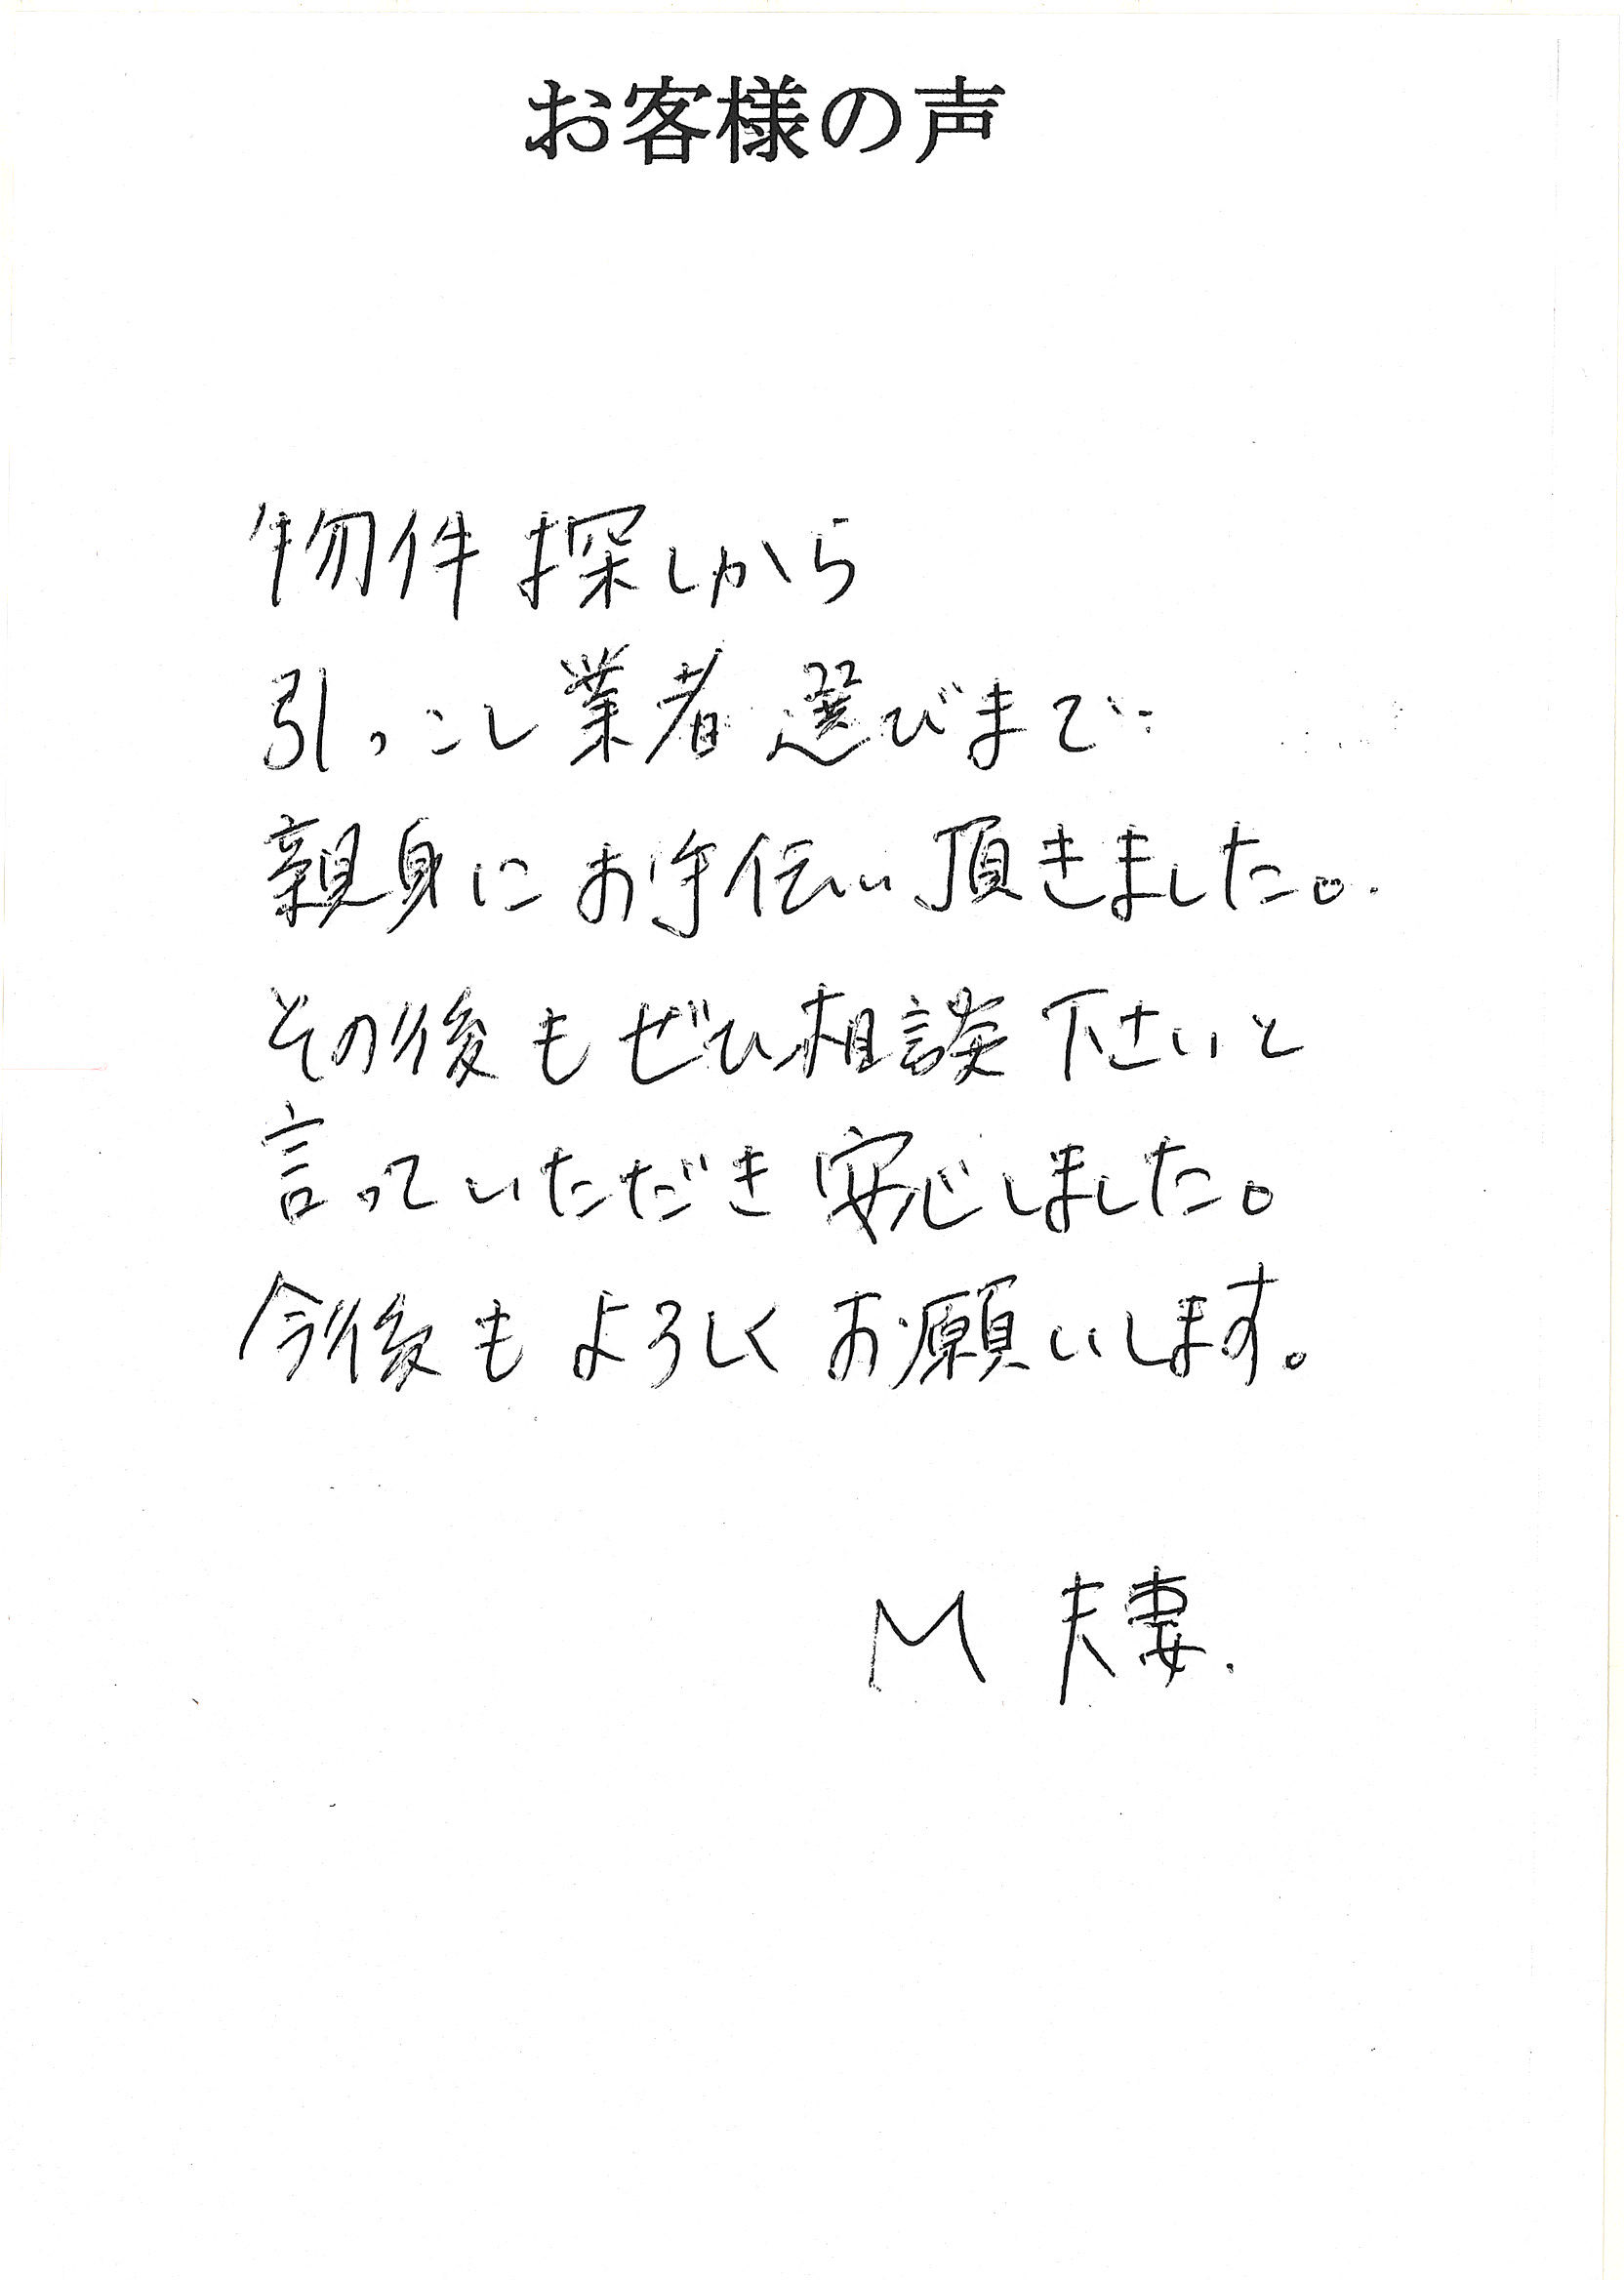 お客様の声
物件探しから
引っこし業者選びまで
親身にお手伝い頂きました。
その後もぜひ相談下さいと
言っていただき安心しました。
今後もよろしくお願いします。
M 夫妻.